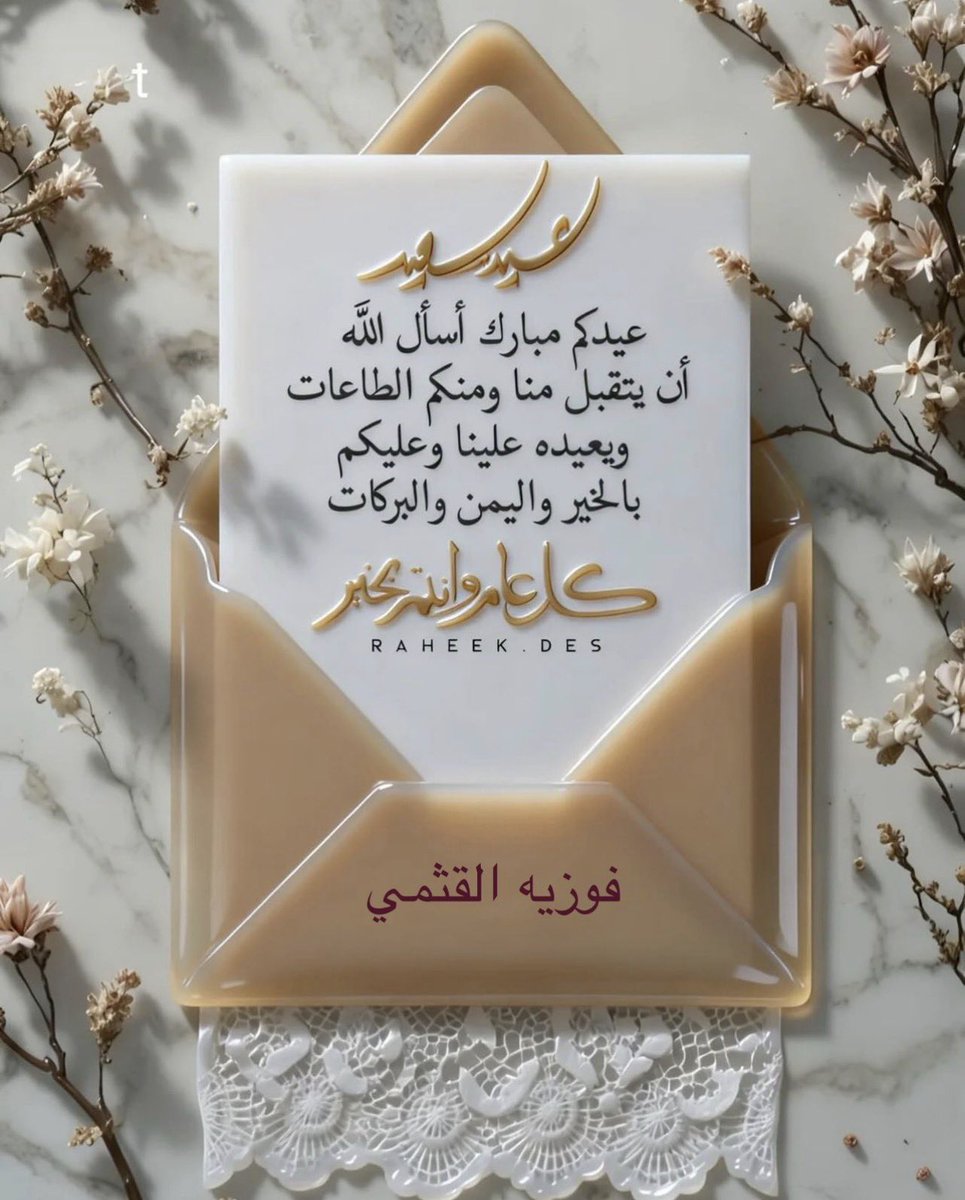 t
عيد سعيد
عيدكم مبارك أسأل اللَّه
أن يتقبل منا ومنكم الطاعات
ويعيده علينا وعليكم
بالخير واليمن والبركات
كل عام وانتم بخير
RAHEEK.DES
فوزيه القثمي